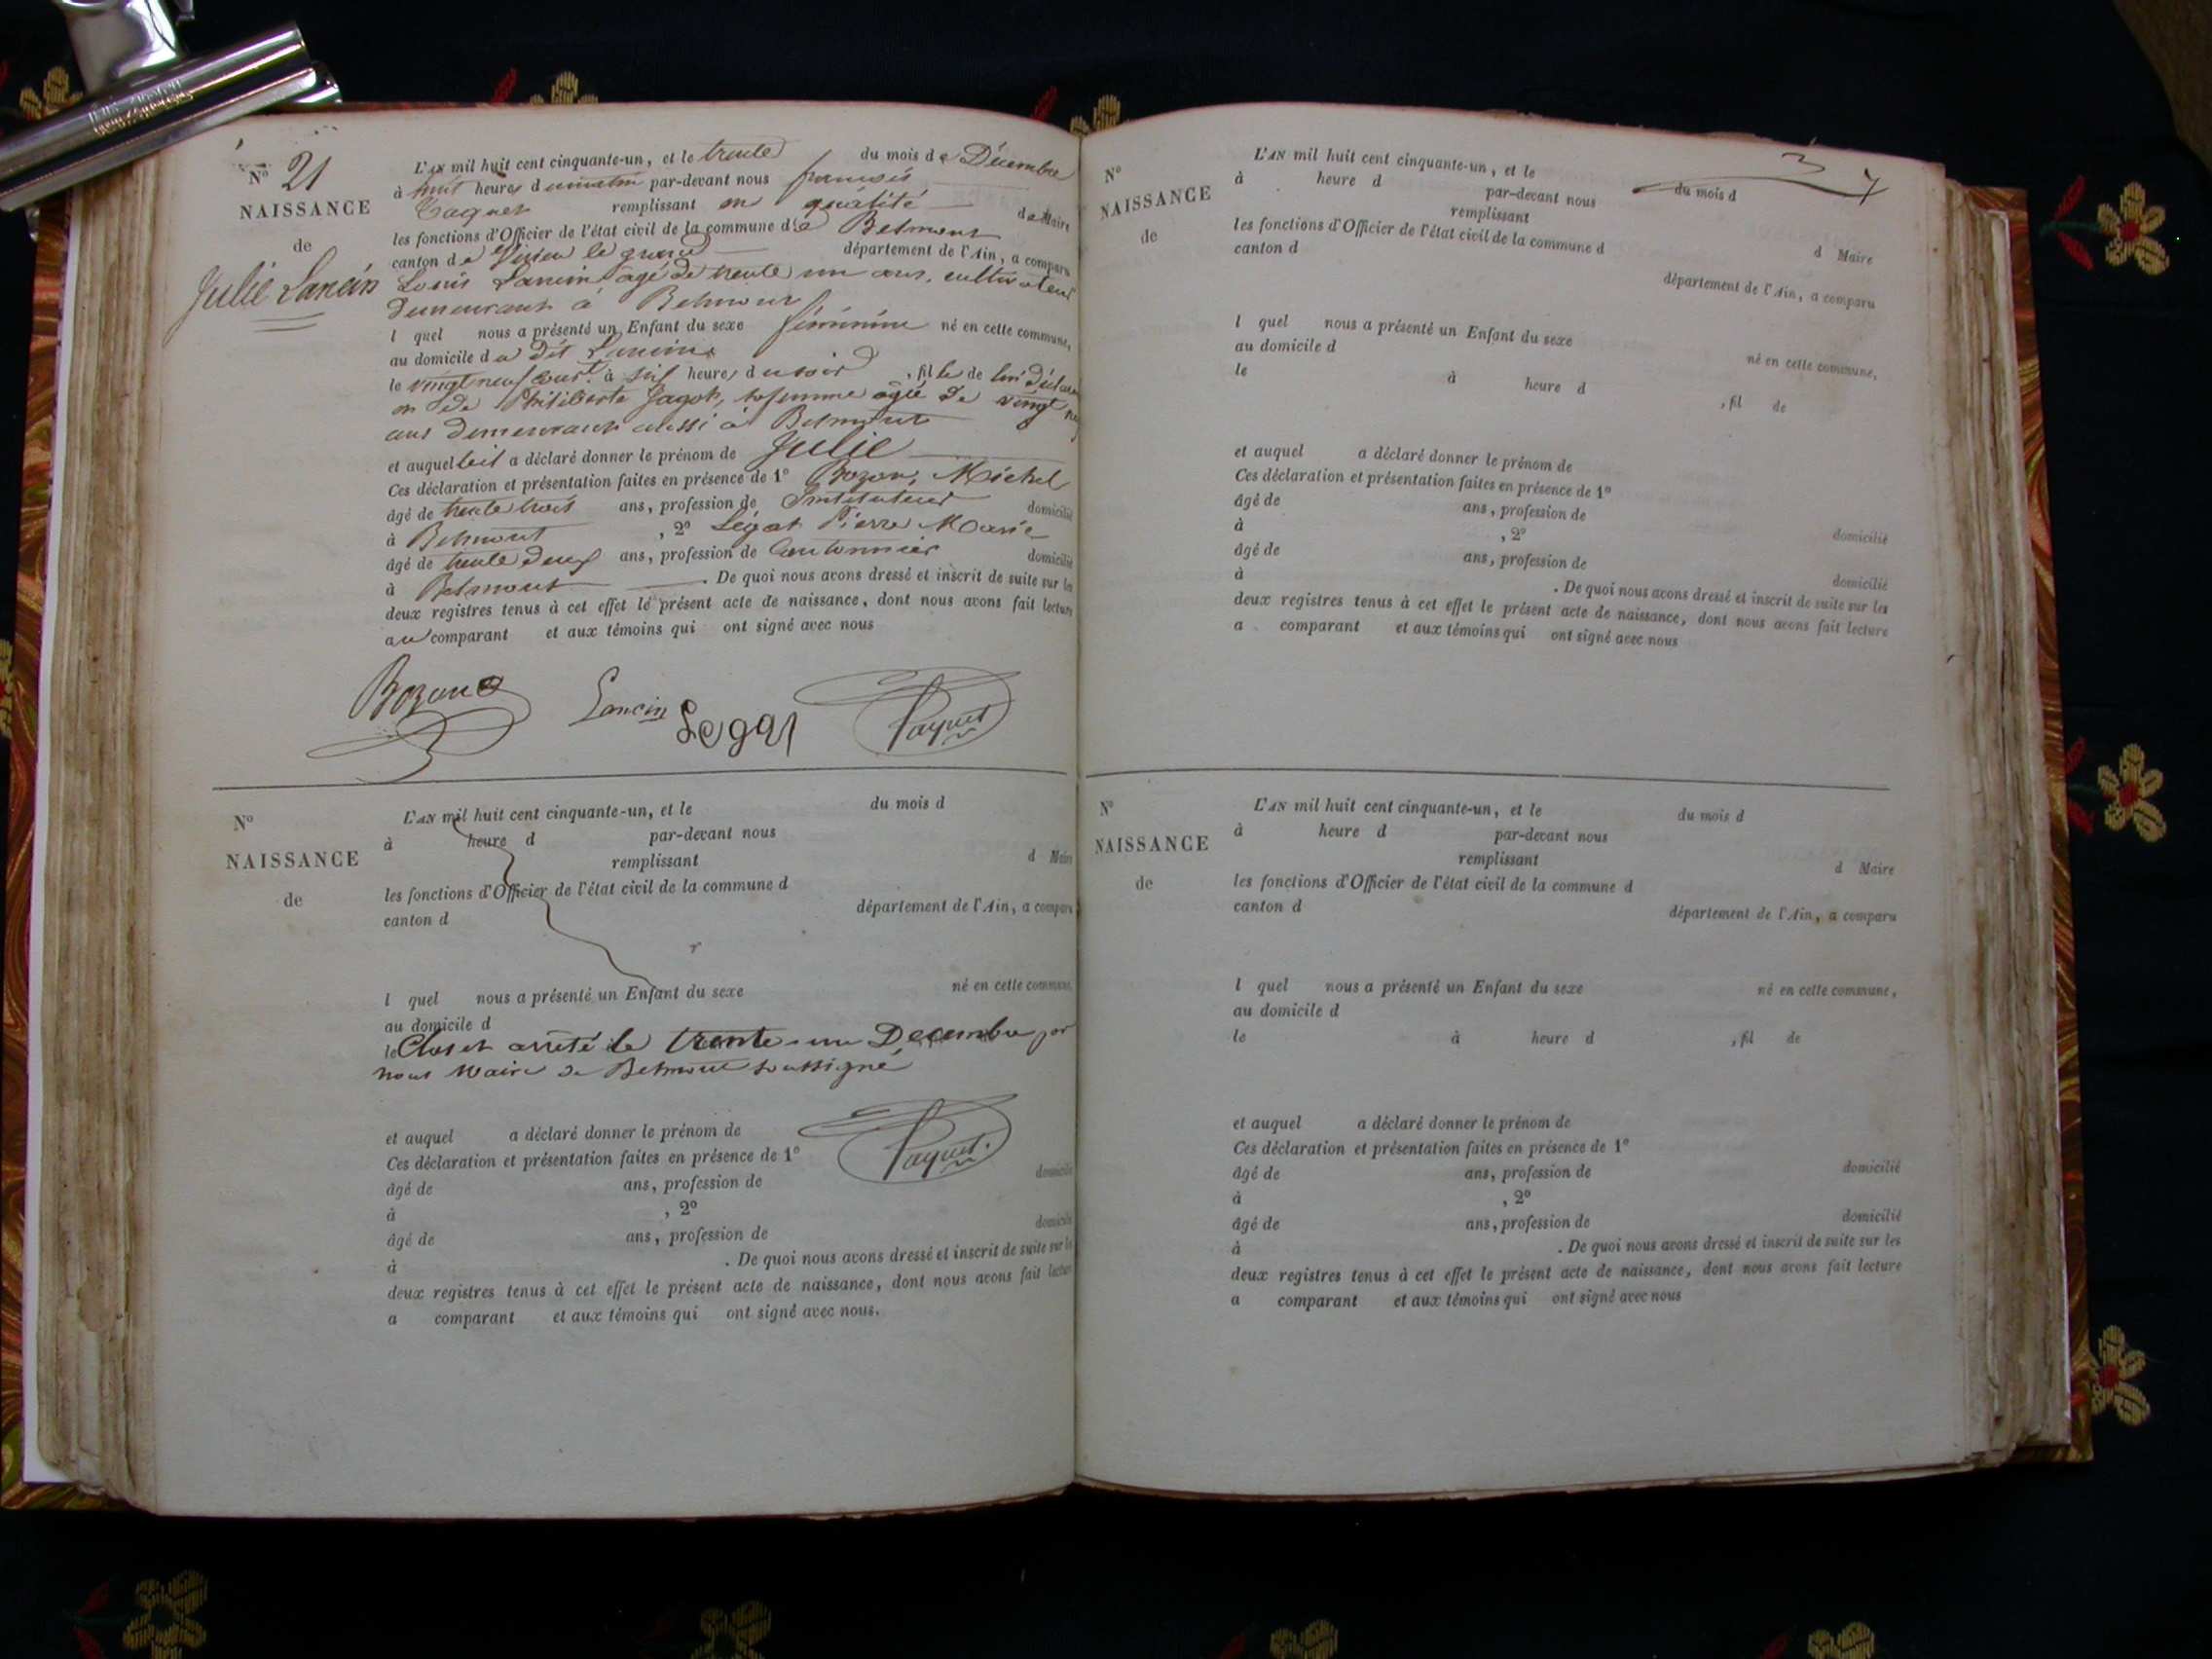 N° 21
NAISSANCE
de
Julie Lancin
L'AN mil huit cent cinquante-un, et le trente du mois de Décembre
à huit heures du matin par-devant nous françois
Paquet remplissant en qualité de Maire
les fonctions d'Officier de l'état civil de la commune de Belmont
canton de Virieu le grand département de l'Ain, a comparu
Louis Lancin âgé de trente un ans, cultivateur
demeurant à Belmont
l quel nous a présenté un Enfant du sexe féminin né en cette commune,
au domicile du dit Lancin
le vingt neuf cour.t à six heures du soir, fille de lui déclarant
et de Philiberte Jagot, sa femme agée de vingt
ans demeurant aussi à Belmont
et auquel a déclaré donner le prénom de Julie
Ces déclaration et présentation faites en présence de 1° Bozon, Michel
âgé de trente trois ans, profession de Instituteur domicilié
à Belmont, 2° Légat Pierre Marie
âgé de trente deux ans, profession de Cantonnier domicilié
à Belmont. De quoi nous avons dressé et inscrit de suite sur les
deux registres tenus à cet effet le présent acte de naissance, dont nous avons fait lecture
au comparant et aux témoins qui ont signé avec nous
Bozon Lancin Legat Paquet
N°
NAISSANCE
de
L'AN mil huit cent cinquante-un, et le du mois d
à heure d par-devant nous
remplissant d Maire
les fonctions d'Officier de l'état civil de la commune d
canton d département de l'Ain, a comparu
l quel nous a présenté un Enfant du sexe né en cette commune,
au domicile d
le Clos et arrêté le trente-un Decembre par
nous Maire de Belmont soussigné
Paquet
et auquel a déclaré donner le prénom de
Ces déclaration et présentation faites en présence de 1°
âgé de ans, profession de domicilié
à , 2°
âgé de ans, profession de domicilié
à . De quoi nous avons dressé et inscrit de suite sur les
deux registres tenus à cet effet le présent acte de naissance, dont nous avons fait lecture
a comparant et aux témoins qui ont signé avec nous.
N°
NAISSANCE
de
L'AN mil huit cent cinquante-un, et le du mois d
à heure d par-devant nous
remplissant d Maire
les fonctions d'Officier de l'état civil de la commune d
canton d département de l'Ain, a comparu
l quel nous a présenté un Enfant du sexe né en cette commune,
au domicile d
le à heure d , fil de
et auquel a déclaré donner le prénom de
Ces déclaration et présentation faites en présence de 1°
âgé de ans, profession de
à , 2° domicilié
âgé de ans, profession de
à domicilié
. De quoi nous avons dressé et inscrit de suite sur les
deux registres tenus à cet effet le présent acte de naissance, dont nous avons fait lecture
a comparant et aux témoins qui ont signé avec nous
N°
NAISSANCE
de
L'AN mil huit cent cinquante-un, et le du mois d
à heure d par-devant nous
remplissant d Maire
les fonctions d'Officier de l'état civil de la commune d
canton d département de l'Ain, a comparu
l quel nous a présenté un Enfant du sexe né en cette commune,
au domicile d
le à heure d , fil de
et auquel a déclaré donner le prénom de
Ces déclaration et présentation faites en présence de 1°
âgé de ans, profession de domicilié
à , 2°
âgé de ans, profession de domicilié
à . De quoi nous avons dressé et inscrit de suite sur les
deux registres tenus à cet effet le présent acte de naissance, dont nous avons fait lecture
a comparant et aux témoins qui ont signé avec nous